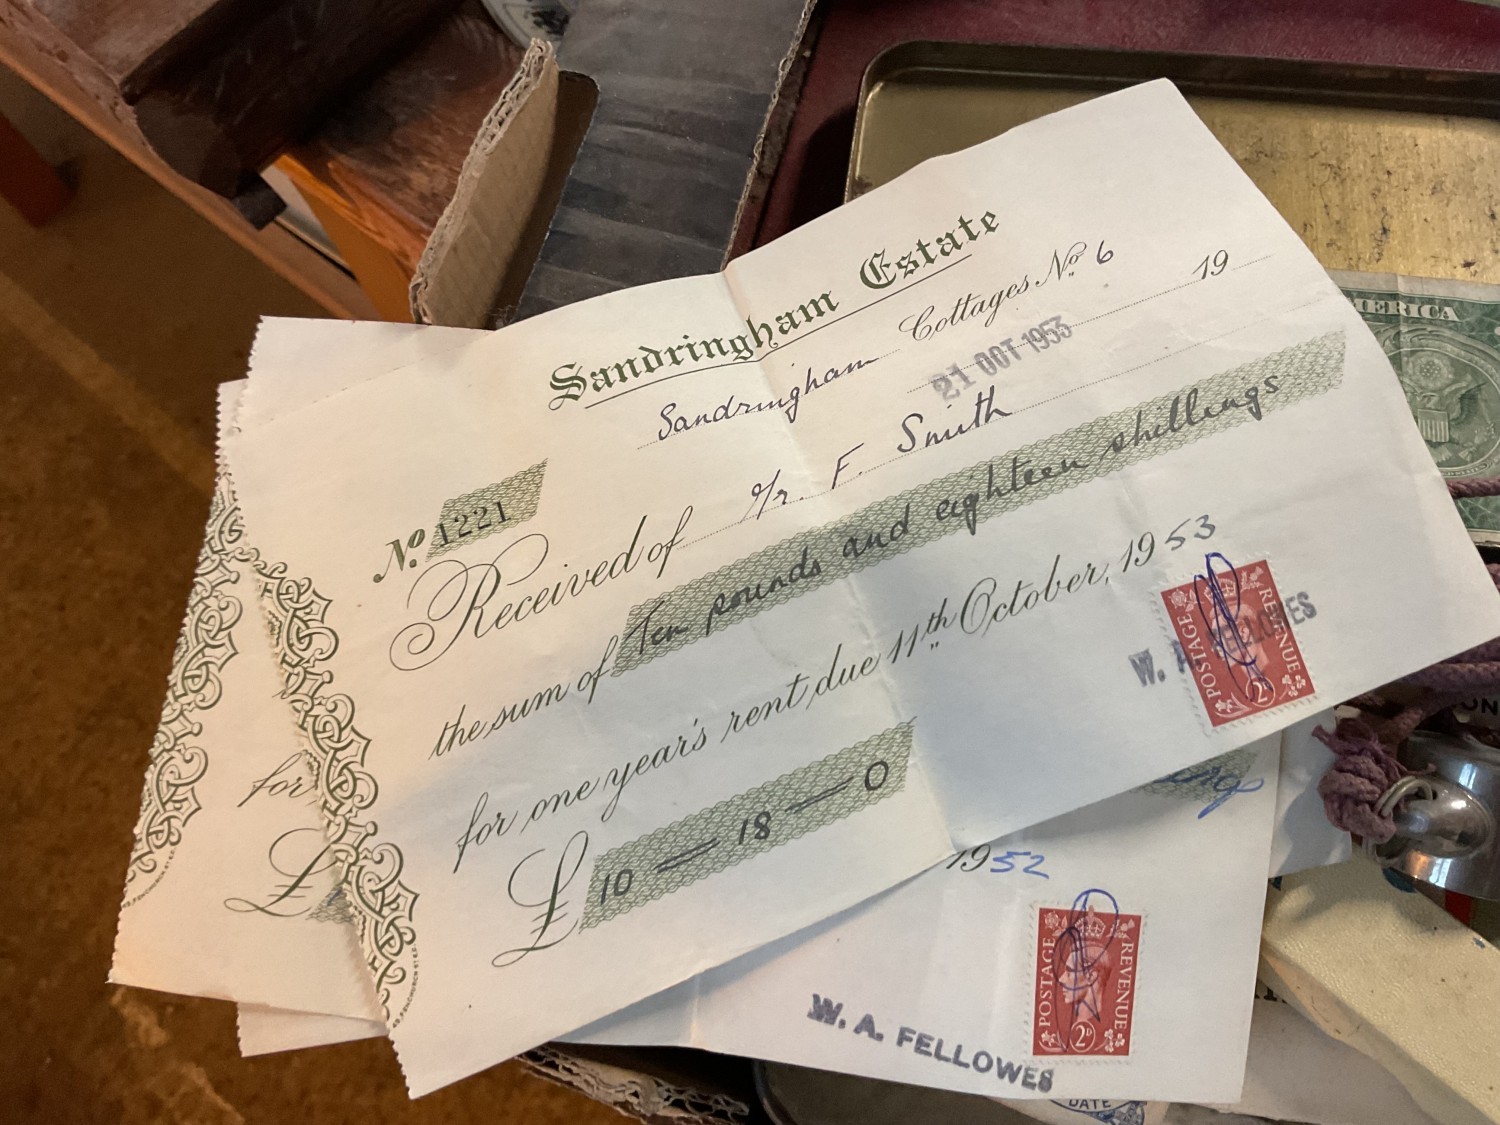 Sandringham Estate
Sandringham Cottages No. 6
19
21 OCT 1953
No. 1221
Received of Mr. F. Smith
the sum of Ten pounds and eighteen shillings
for one year's rent due 11th October, 1953
£ 10 — 18 — 0
POSTAGE REVENUE
2D
W. A. FELLOWES
for
£
1952
POSTAGE REVENUE
2D
W. A. FELLOWES
DATE
MERICA